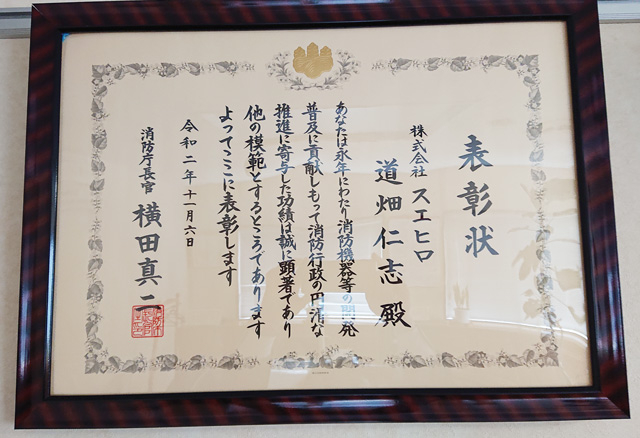 表彰状
株式会社 スエヒロ
道畑仁志 殿
あなたは永年にわたり消防機器等の開発
普及に貢献しもって消防行政の円滑な
推進に寄与した功績は誠に顕著であり
他の模範とするところであります
よってここに表彰します
令和二年十一月六日
消防庁長官 横田真二